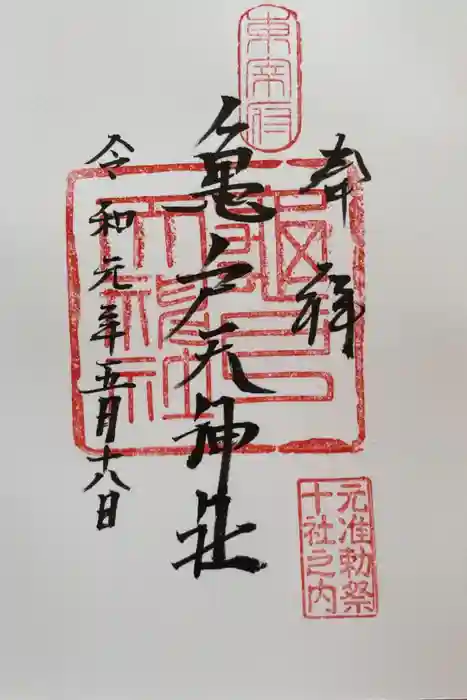 奉拝
亀戸天神社
令和元年五月十八日
東宰府
亀戸
天神社
元准勅祭
十社之内